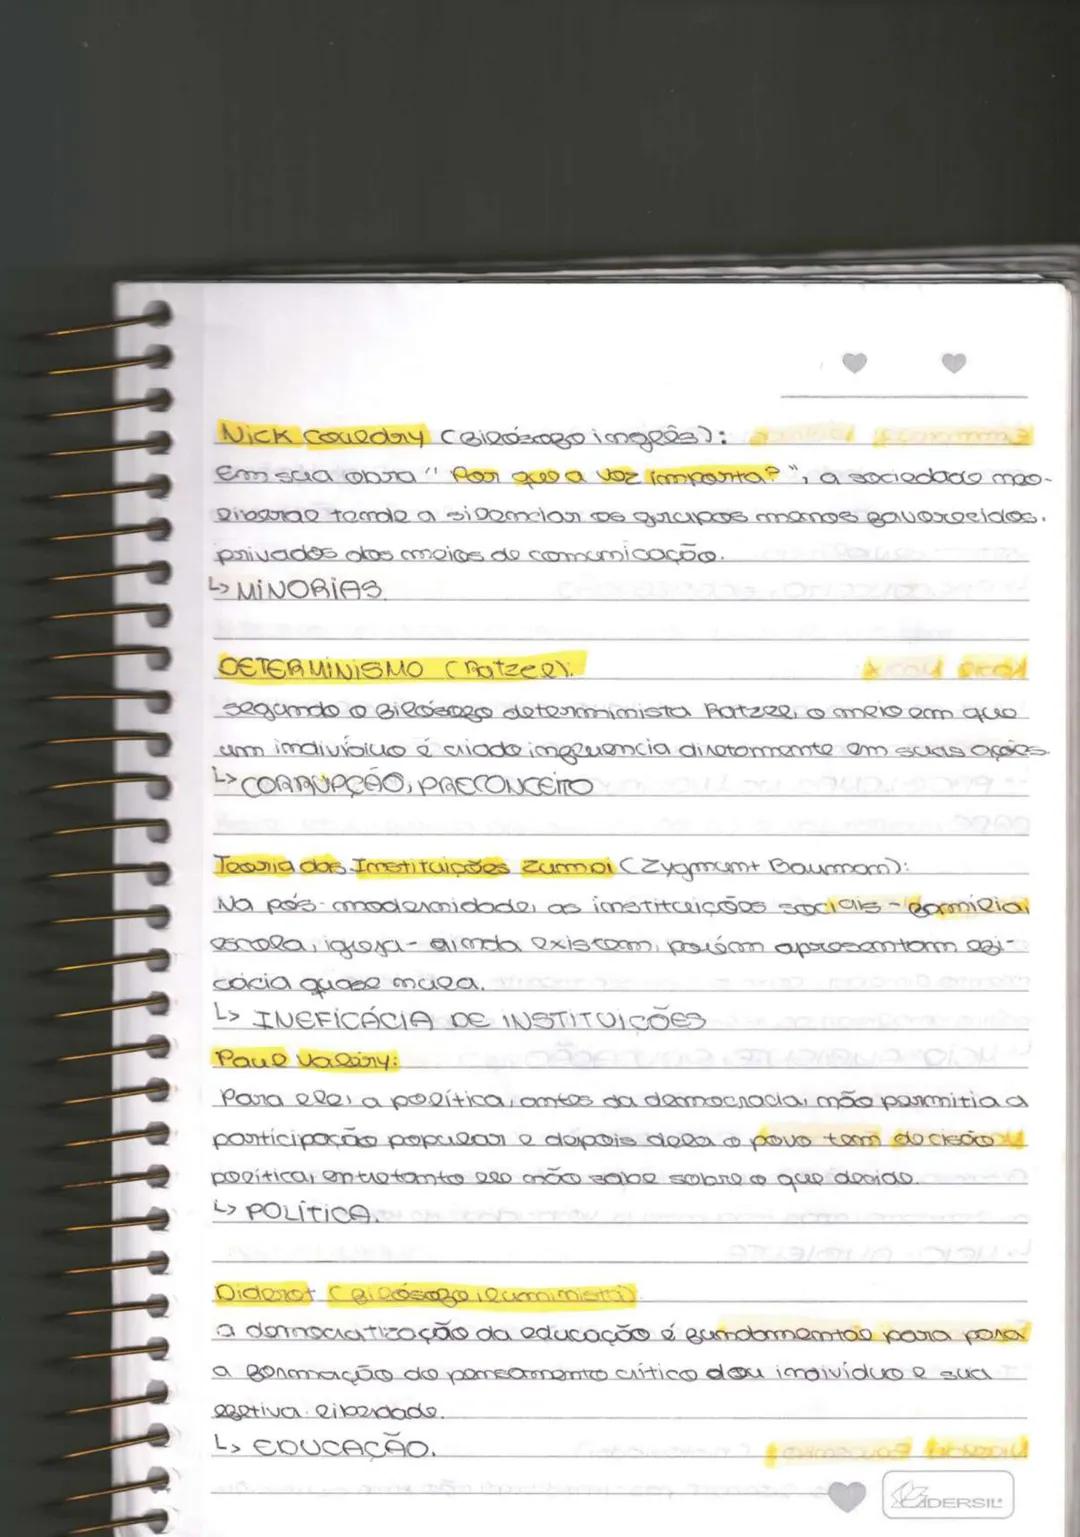 Nick Couldry (filósofo inglês):
Em sua obra "Por que a voz importa?", a sociedade neo-
liberal tende a silenciar os grupos menos favorecidos.
privados dos meios de comunicação.
↳ MINORIAS
DETERMINISMO (Ratzel).
segundo o filósofo determinista Ratzel, o meio em que
um indivíduo é criado influencia diretamente em suas ações.
↳ CORRUPÇÃO, PRECONCEITO
Teoria das Instituições Zumbi (Zygmunt Bauman):
Na pós-modernidade, as instituições sociais - família,
escola, igreja - ainda existem, porém apresentam efi-
cácia quase nula.
↳ INEFICÁCIA DE INSTITUIÇÕES
Paul Valéry:
Para ele, a política, antes da democracia, não permitia a
participação popular e depois dela o povo tem decisão
política, entretanto ele não sabe sobre o que decide.
↳ POLÍTICA.
Diderot (filósofo iluminista).
a democratização da educação é fundamental para para
a formação do pensamento crítico do indivíduo e sua
efetiva liberdade.
↳ EDUCAÇÃO.
CADERSIL